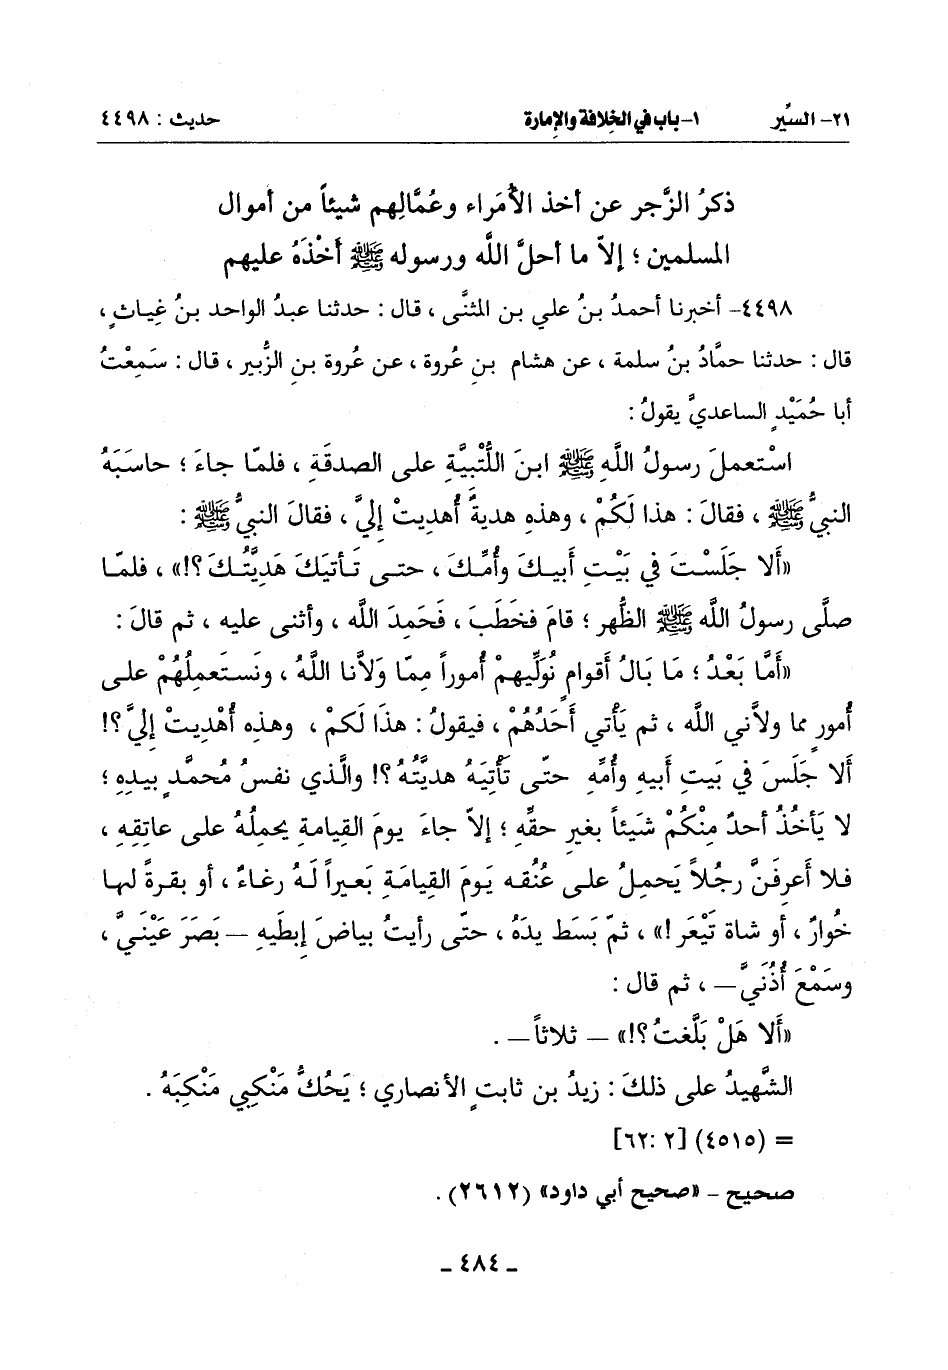 ٢١- السِّير ١- باب في الخِلافة والإمارة حديث : ٤٤٩٨
ذكرُ الزَّجر عن أخذ الأُمَراء وعُمَّالِهم شيئاً من أموال
المسلمين ؛ إلاّ ما أحلَّ اللَّه ورسوله ﷺ أخْذَهُ عليهم
٤٤٩٨- أخبرنا أحمدُ بنُ علي بن المثنَّى ، قال : حدثنا عبدُ الواحد بنُ غِياثٍ ،
قال : حدثنا حمَّادُ بنُ سلمة ، عن هشام بنِ عُروة ، عن عُروة بنِ الزُّبير ، قال : سَمِعْتُ
أبا حُمَيْدٍ الساعديَّ يقولُ :
اسْتعملَ رسولُ اللَّهِ ﷺ ابنَ اللُّتْبيَّةِ على الصدقَةِ ، فلمّا جاءَ ؛ حاسَبَهُ
النبيُّ ﷺ ، فقالَ : هذا لَكُمْ ، وهذهِ هديةٌ أُهدِيتْ إليَّ ، فقالَ النبيُّ ﷺ :
«أَلا جَلَسْتَ في بَيْتِ أَبيكَ وأُمِّكَ ، حتى تَأتيَكَ هَدِيَّتُكَ ؟!» ، فلمّا
صلَّى رسولُ اللَّه ﷺ الظُّهر ؛ قامَ فخَطَبَ ، فَحَمِدَ اللَّه ، وأثنى عليه ، ثم قالَ :
«أَمَّا بَعْدُ ؛ مَا بَالُ أَقوامٍ نُوَلِّيهِمْ أُموراً مِمّا وَلاَّنا اللَّهُ ، ونَستَعمِلُهُمْ على
أُمورٍ مما ولاَّني اللَّه ، ثم يَأْتي أَحَدُهُمْ ، فيقولُ : هذَا لَكمْ ، وهذه أُهْدِيتْ إليَّ ؟!
أَلا جَلَسَ في بَيتِ أَبيهِ وأُمِّهِ حتّى تَأْتِيَهُ هديَّتُهُ ؟! والَّذي نفسُ مُحمَّدٍ بيدِهِ ؛
لا يَأخُذُ أحدٌ مِنْكُمْ شَيئاً بغيرِ حقِّهِ ؛ إلاّ جاءَ يومَ القيامةِ يحمِلُهُ على عاتِقِهِ ،
فلا أَعرفَنَّ رجُلاً يَحمِلُ على عُنُقه يَومَ القِيامَةِ بَعيراً لَهُ رغاءٌ ، أو بقرةً لها
خُوارٌ ، أو شاة تَيْعَر !» ، ثمّ بَسَط يدَهُ ، حتّى رأيتُ بياضَ إبطَيهِ — بَصَرَ عَيْنَيَّ ،
وسَمْعَ أُذُنَيَّ — ، ثم قال :
«أَلا هَلْ بَلَّغتُ ؟!» — ثلاثاً — .
الشَّهيدُ على ذلكَ : زيدُ بن ثابتٍ الأنصاري ؛ يَحُكُّ مَنْكبي مَنْكِبَهُ .
= (٤٥١٥) [٦٢:٢]
صحيح - «صحيح أبي داود» (٢٦١٢) .
ـ ٤٨٤ ـ